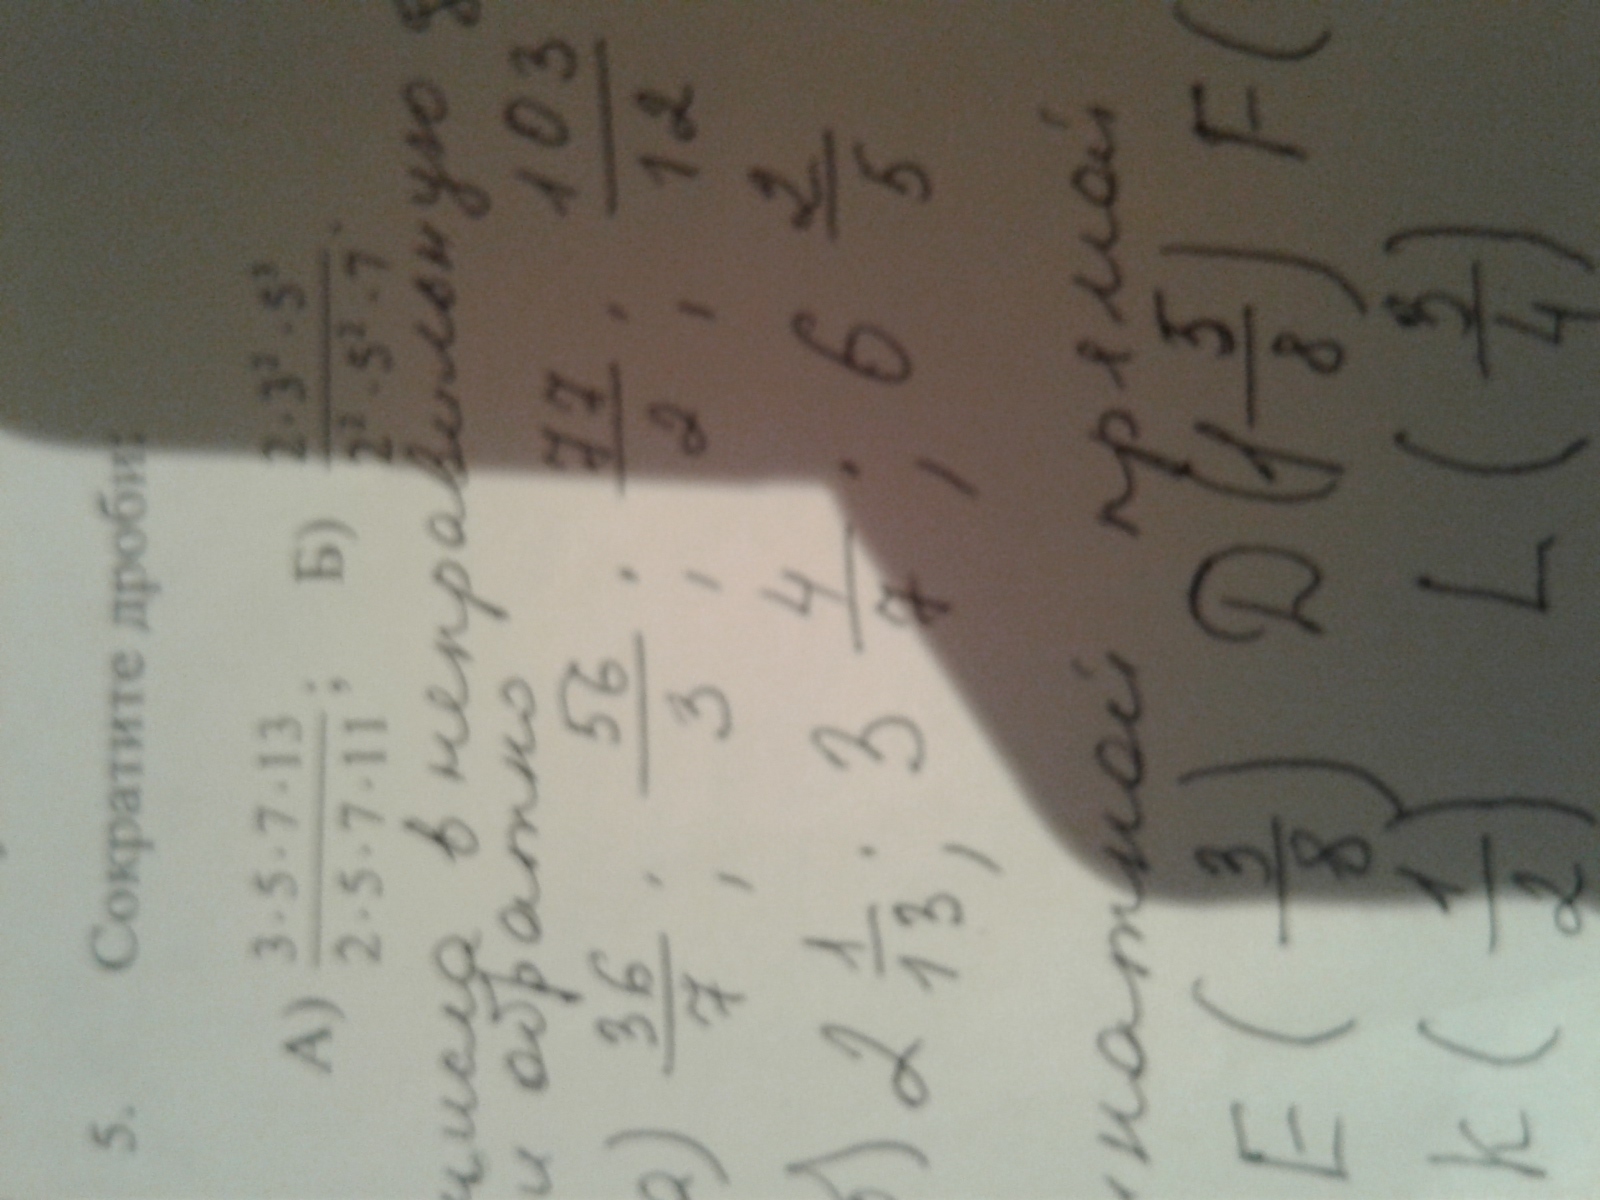 5. Сократите дроби:
А) 3·5·7·13/2·5·7·11; Б) 2·3²·5³/2²·5²·7.
в неправильную
и обратно
а) 36/7; 56/3; 77/2; 103/12
2 1/13; 3 4/7; 6 2/5
прямой
E(3/8) D(1 5/8) F(
K(1/2) L(3/4)